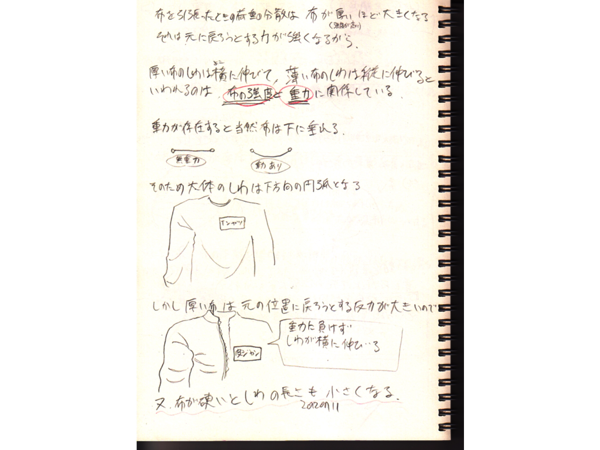 布を引張ったときの荷重の分散は 布が厚いほど大きくなる
それは元に戻ろうとする力が強くなるから.
厚い布のしわは横に伸びて, 薄い布のしわは縦に伸びると
いわれるのは 布の強度と重力に関係している.
重力が存在すると当然布は下に垂れる.
無重力 重力あり
そのため大体のしわは下方向の円弧となる
Tシャツ
しかし厚い布は元の位置に戻ろうとする反力が大きいので
重力に負けず
しわが横に伸びる
又 布が硬いとしわの長さも小さくなる.